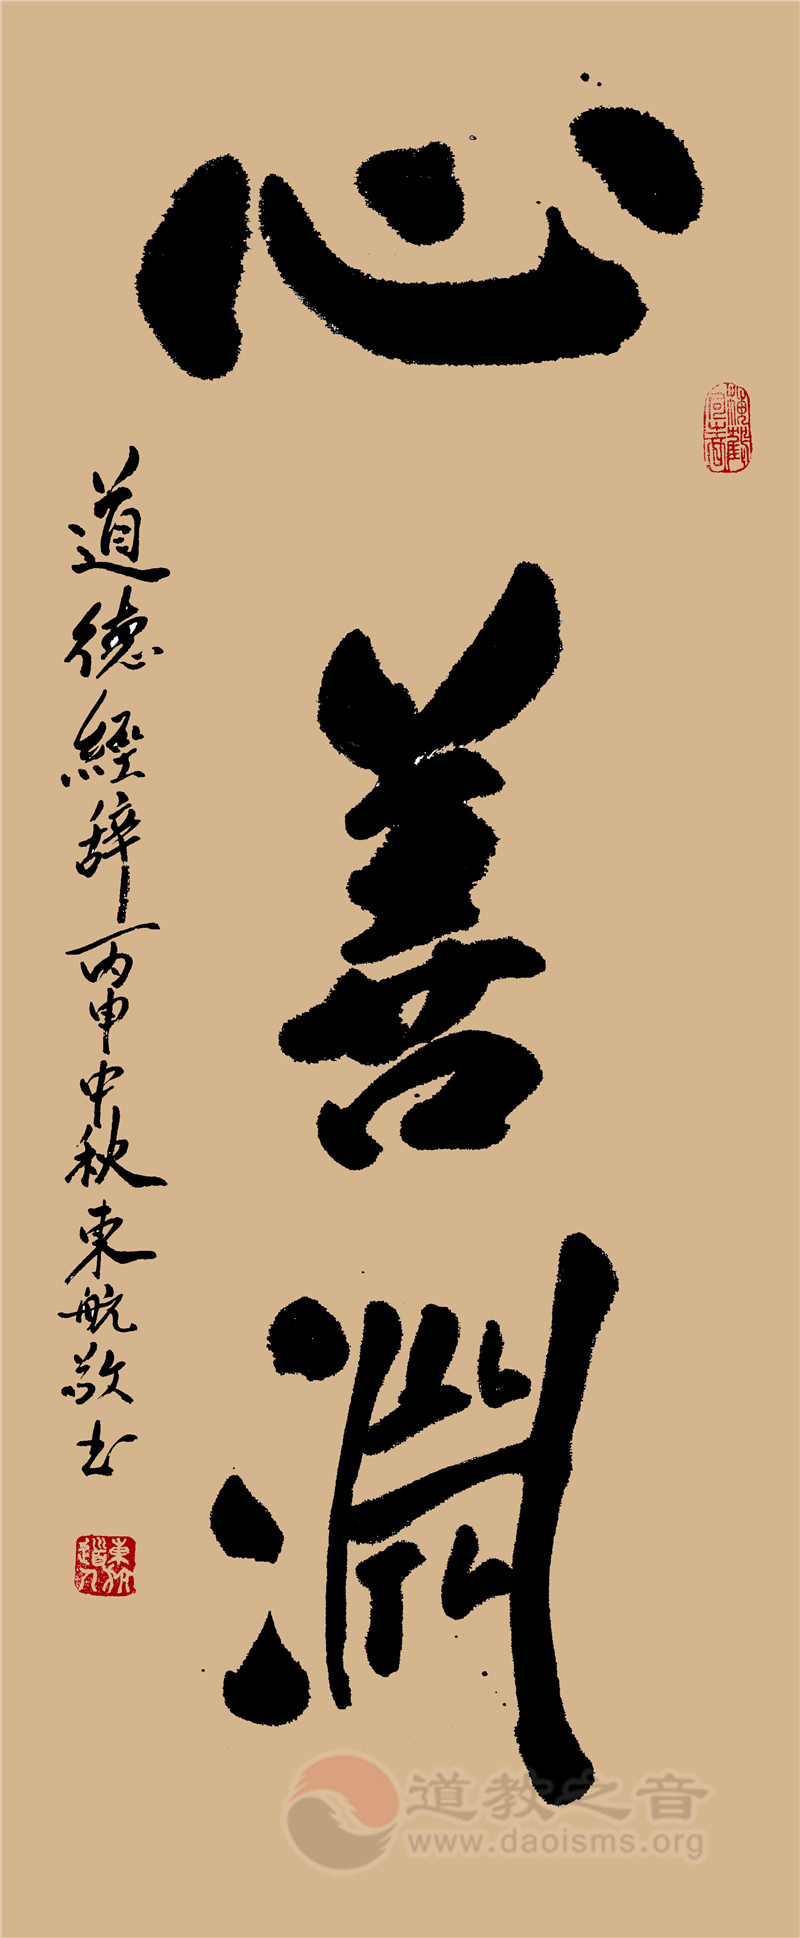 心善淵
道德經辞丙申中秋東航敬书
道教之音
www.daoisms.org